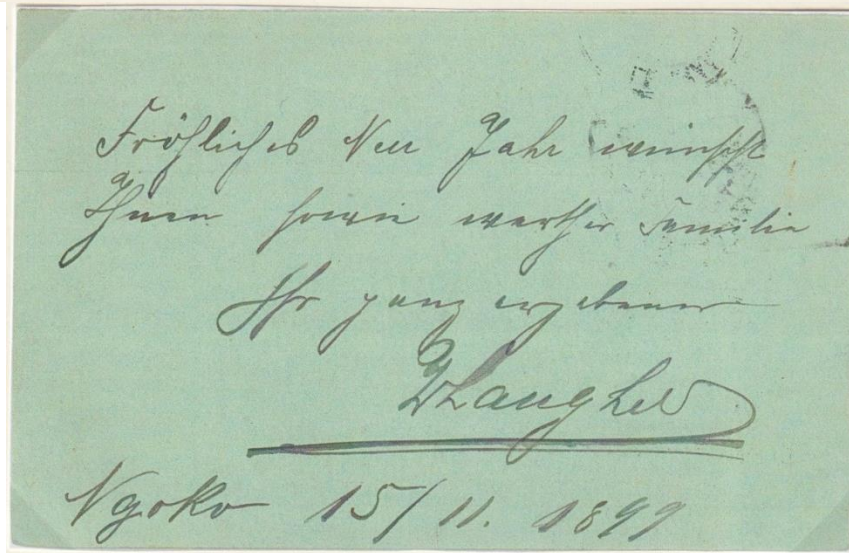 Fröhliches Neu Jahr wünscht
Ihnen sowie werther Familie
Ihr ganz ergebener
Ngoko 15/11. 1899